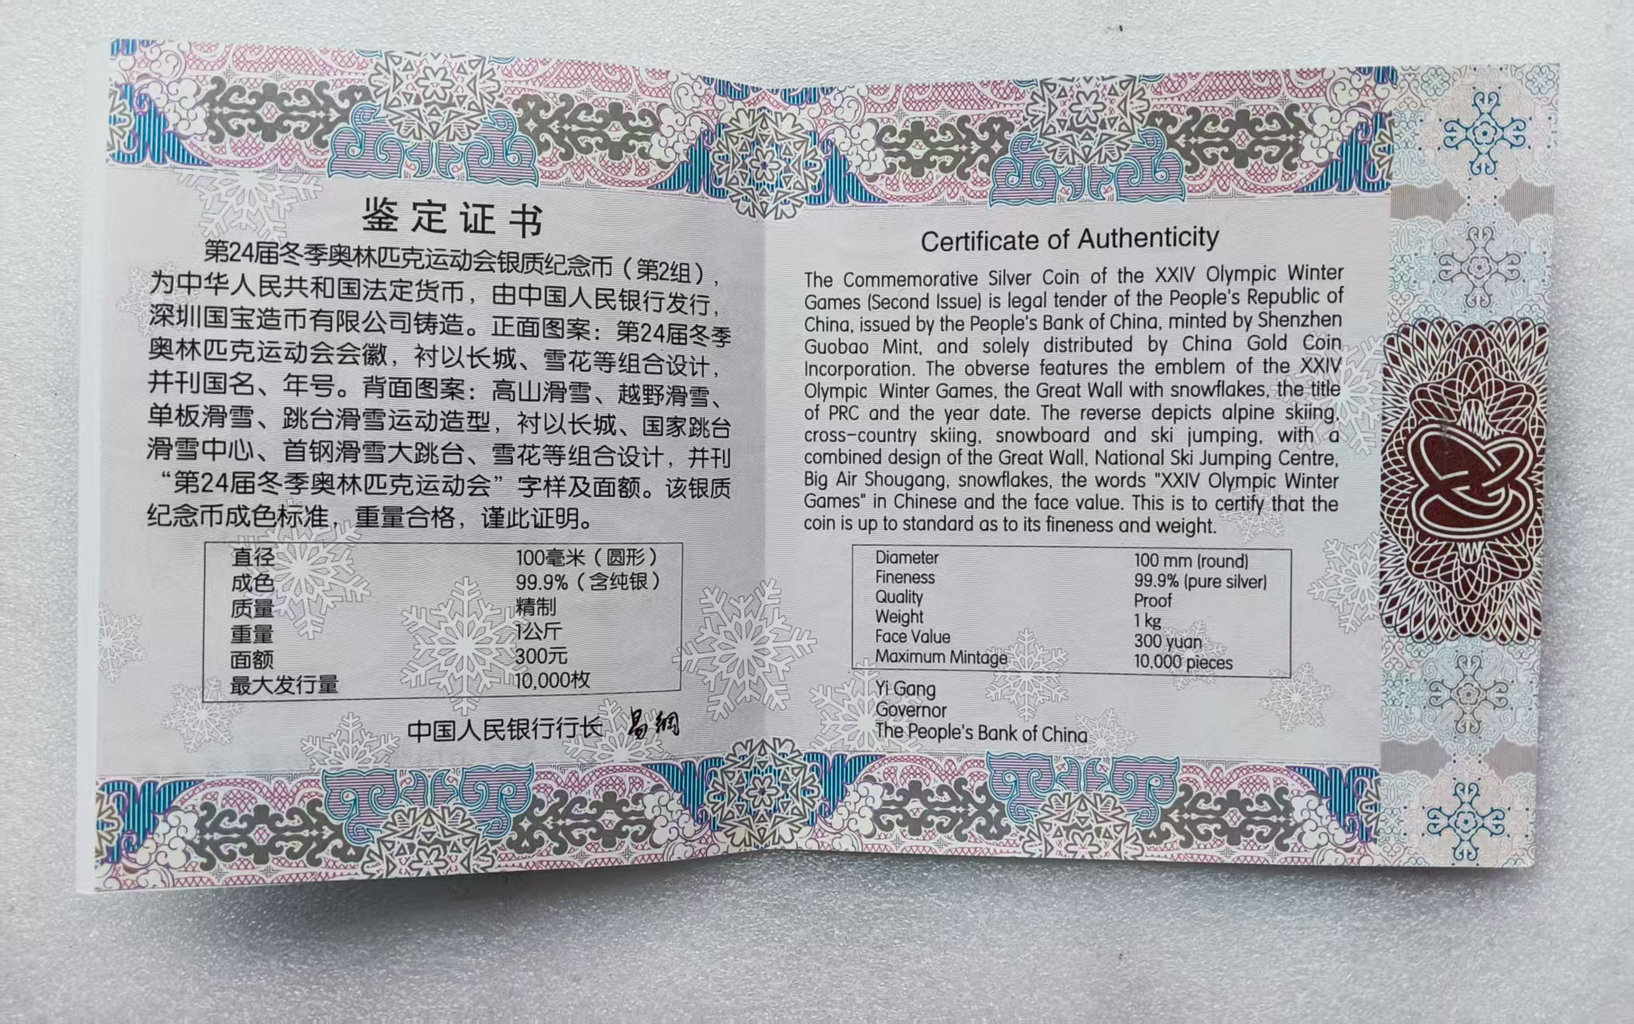 鉴定证书
第24届冬季奥林匹克运动会银质纪念币（第2组），
为中华人民共和国法定货币，由中国人民银行发行，
深圳国宝造币有限公司铸造。正面图案：第24届冬季
奥林匹克运动会会徽，衬以长城、雪花等组合设计，
并刊国名、年号。背面图案：高山滑雪、越野滑雪、
单板滑雪、跳台滑雪运动造型，衬以长城、国家跳台
滑雪中心、首钢滑雪大跳台、雪花等组合设计，并刊
“第24届冬季奥林匹克运动会”字样及面额。该银质
纪念币成色标准，重量合格，谨此证明。
直径 100毫米（圆形）
成色 99.9%（含纯银）
质量 精制
重量 1公斤
面额 300元
最大发行量 10,000枚
中国人民银行行长 易纲
Certificate of Authenticity
The Commemorative Silver Coin of the XXIV Olympic Winter
Games (Second Issue) is legal tender of the People's Republic of
China, issued by the People's Bank of China, minted by Shenzhen
Guobao Mint, and solely distributed by China Gold Coin
Incorporation. The obverse features the emblem of the XXIV
Olympic Winter Games, the Great Wall with snowflakes, the title
of PRC and the year date. The reverse depicts alpine skiing,
cross-country skiing, snowboard and ski jumping, with a
combined design of the Great Wall, National Ski Jumping Centre,
Big Air Shougang, snowflakes, the words "XXIV Olympic Winter
Games" in Chinese and the face value. This is to certify that the
coin is up to standard as to its fineness and weight.
Diameter 100 mm (round)
Fineness 99.9% (pure silver)
Quality Proof
Weight 1 kg
Face Value 300 yuan
Maximum Mintage 10,000 pieces
Yi Gang
Governor
The People's Bank of China